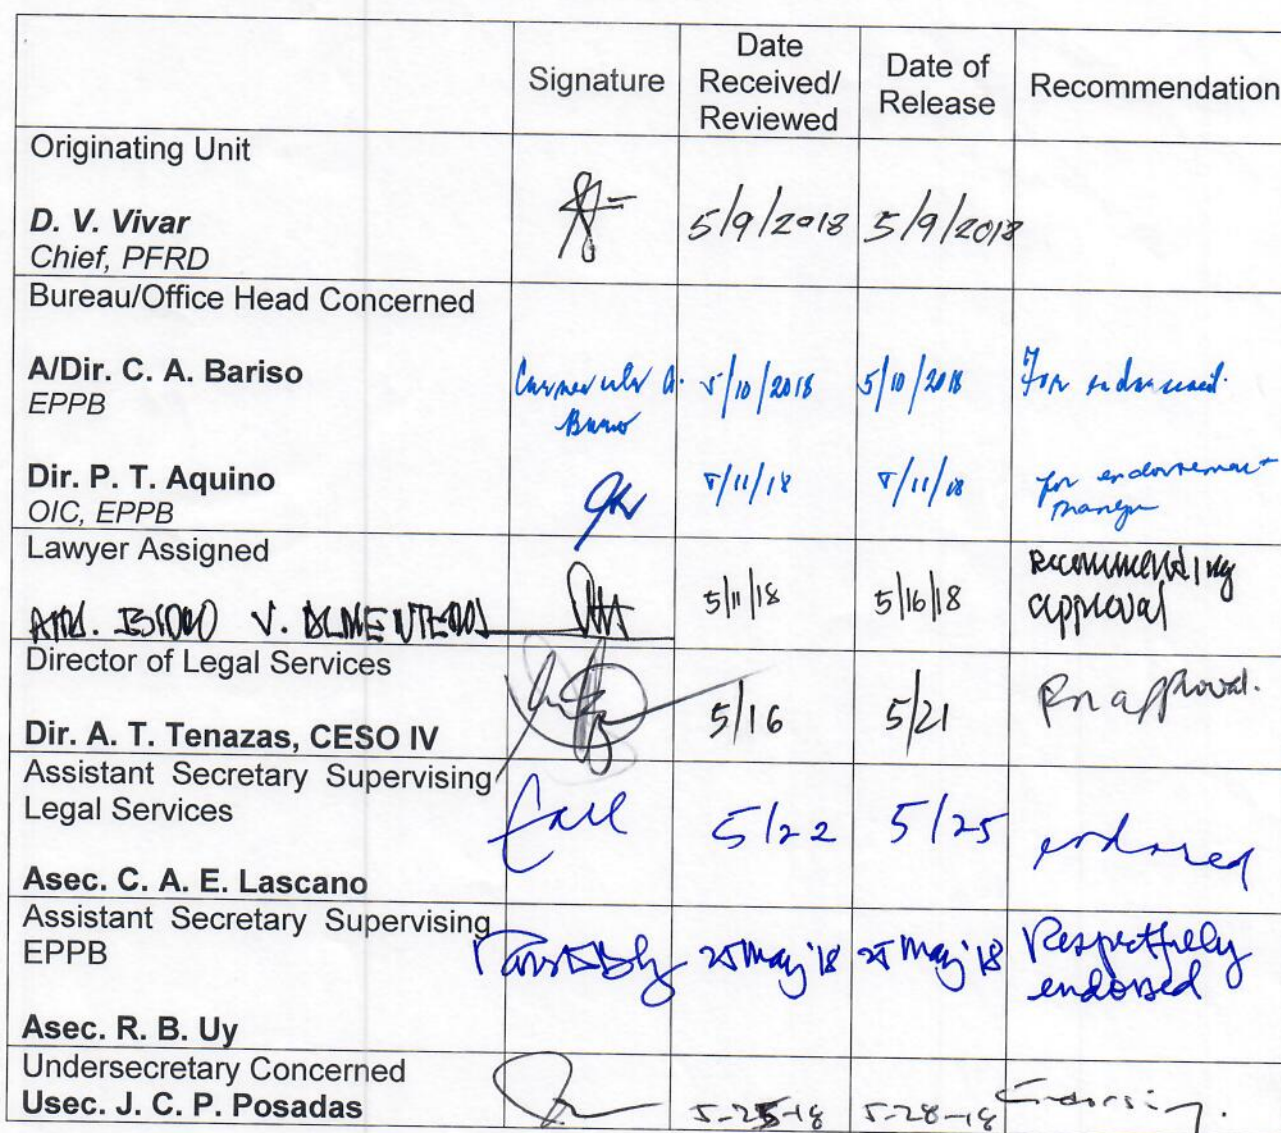 Signature
Date
Received/
Reviewed
Date of
Release
Recommendation
Originating Unit
D. V. Vivar
Chief, PFRD
5/9/2018 5/9/2018
Bureau/Office Head Concerned
A/Dir. C. A. Bariso
EPPB
5/10/2018 5/10/2018 For
Dir. P. T. Aquino
OIC, EPPB
5/11/18 5/11/18 for endorsement
Lawyer Assigned
V. 5/11/18 5/16/18 Recommending
approval
Director of Legal Services
Dir. A. T. Tenazas, CESO IV
5/16 5/21 For approval.
Assistant Secretary Supervising
Legal Services
Asec. C. A. E. Lascano
5/22 5/25 endorsed
Assistant Secretary Supervising
EPPB
Asec. R. B. Uy
25 May '18 25 May '18 Respectfully
endorsed
Undersecretary Concerned
Usec. J. C. P. Posadas
5-25-18 5-28-18 Endorsing.